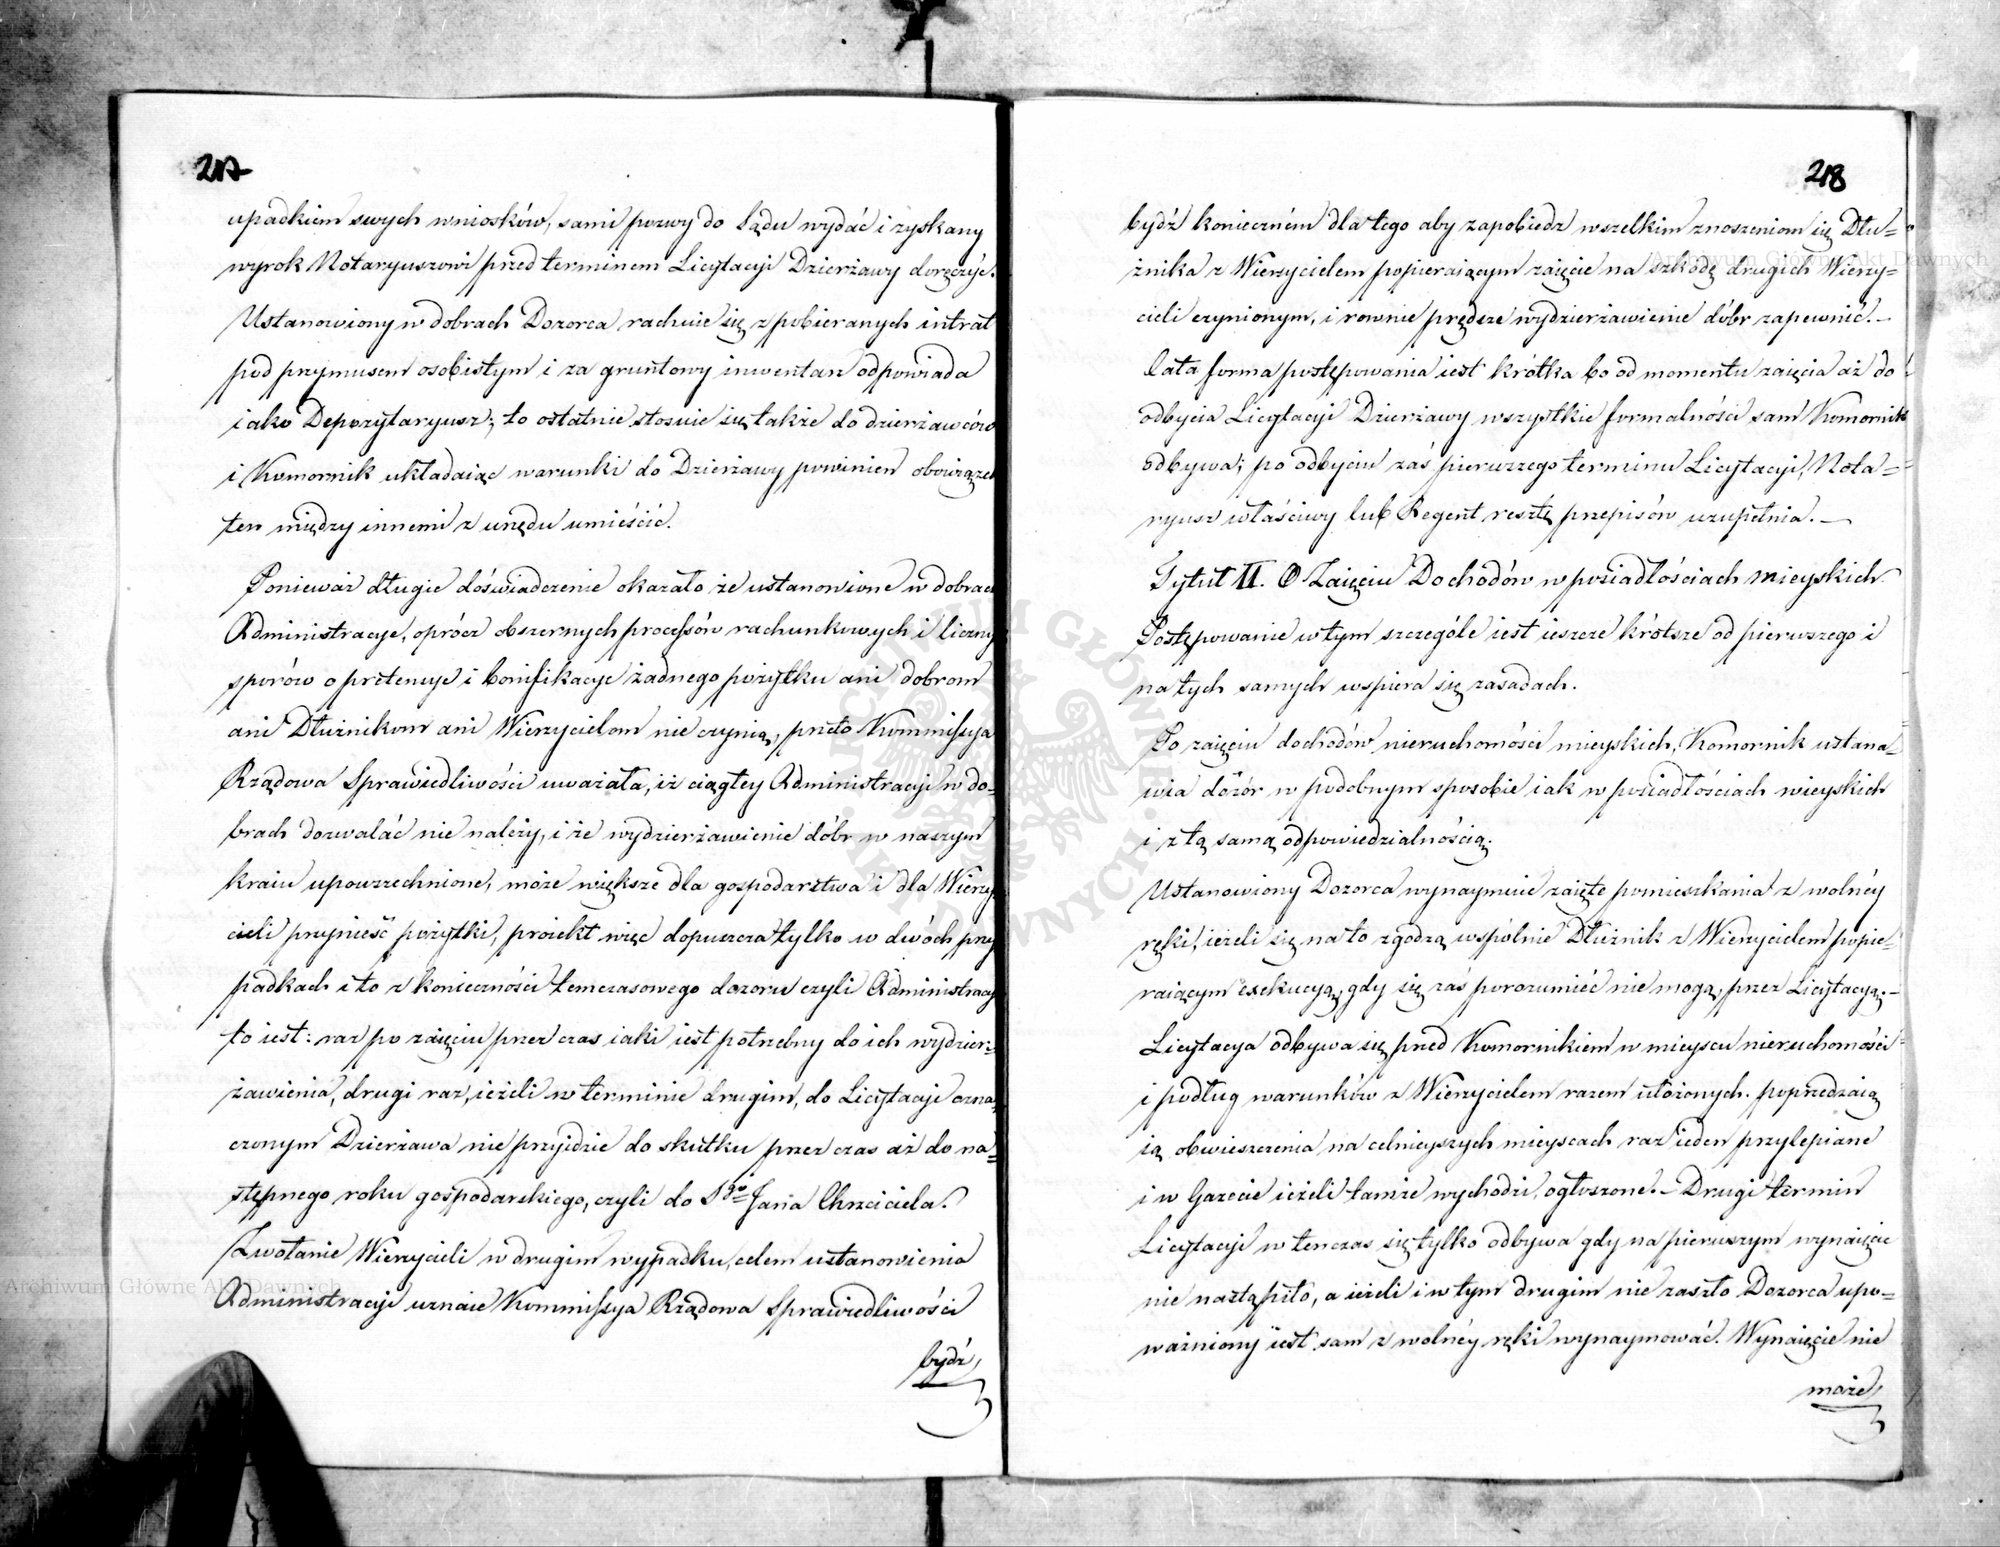 217
upadkiem swych wniosków, sami pozwy do Sądu wydać i zyskany
wyrok Notaryuszowi przed terminem Licytacyi Dzierżawy doręczyć.
Ustanowiony w dobrach Dozorca rachuie się z pobieranych intrat
pod przymusem osobistym i za gruntowy inwentarz odpowiada
iako Depozytaryusz; to ostatnie stosuie się także do dzierżawców
i Komornik układaiąc warunki do Dzierżawy powinien obowiązek
ten między innemi z urzędu umieścić.
Ponieważ długie doświadczenie okazało że ustanowione w dobrach
Administracye, oprócz obszernych processów rachunkowych i liczny
sporów o pretensye i bonifikacye żadnego pożytku ani dobrom
ani Dłużnikom ani Wierzycielom nie czynią, przeto Kommissya
Rządowa Sprawiedliwości uważała, iż ciągłey Administracyi w do=
brach dozwalać nie należy, i że wydzierżawienie dóbr w naszym
kraiu upowszechnione, może większe dla gospodarstwa i dla Wierzy
cieli przynieść pożytki, proiekt więc dopuszcza tylko w dwóch przy
padkach i to z konieczności temczasowego dozoru czyli Administracy
to iest: raz po zaięciu przez czas iaki iest potrzebny do ich wydzier=
żawienia, drugi raz, ieżeli w terminie drugim, do Licytacyi ozna
czonym Dzierżawa nie przyidzie do skutku przez czas aż do na=
stępnego roku gospodarskiego, czyli do Sgo Jana Chrzciciela.
Zwołanie Wierzycieli w drugim wypadku, celem ustanowienia
Administracyi uznaie Kommissya Rządowa Sprawiedliwości
bydź
218
bydź koniecznem dla tego aby zapobiedz wszelkim znoszeniom się Dłu=
żnika z Wierzycielem popieraiącym zaięcie na szkodę drugich Wierzy=
cieli czynionym, i rownie prędsze wydzierżawienie dóbr zapewnić.—
Cała forma postępowania iest krótka bo od momentu zaięcia aż do
odbycia Licytacyi Dzierżawy wszystkie formalności sam Komornik
odbywa; po odbyciu zaś pierwszego terminu Licytacyi, Nota=
ryusz właściwy lub Regent resztę przepisów uzupełnia.—
Tytuł II. O Zaięciu Dochodów w posiadłościach mieyskich.
Postępowanie w tym szczególe iest ieszcze krótsze od pierwszego i
na tych samych wspiera się zasadach.
Po zaięciu dochodów nieruchomości mieyskich, Komornik ustana=
wia dozór w podobnym sposobie iak w posiadłościach wieyskich
i z tą samą odpowiedzialnością.
Ustanowiony Dozorca wynaymuie zaięte pomieszkania z wolney
ręki, ieżeli się na to zgodzą wspólnie Dłużnik z Wierzycielem popie=
raiącym exekucyą, gdy się zaś porozumieć nie mogą, przez Licytacyą.—
Licytacya odbywa się przed Komornikiem w mieyscu nieruchomości
i podług warunków z Wierzycielem razem ułożonych. poprzedzaią
ią obwieszczenia na celnieyszych mieyscach raz ieden przylepiane
i w Gazecie ieżeli tamże wychodzi, ogłoszone.— Drugi termin
Licytacyi w tenczas się tylko odbywa gdy na pierwszym wynaięcie
nie nastąpiło, a ieżeli i w tym drugim nie zaszło Dozorca upo=
ważniony iest sam z wolney ręki wynaymować. Wynaięcie nie
może
Archiwum Główne Akt Dawnych
Archiwum Główne Akt Dawnych
ARCHIWUM GŁÓWNE AKT DAWNYCH